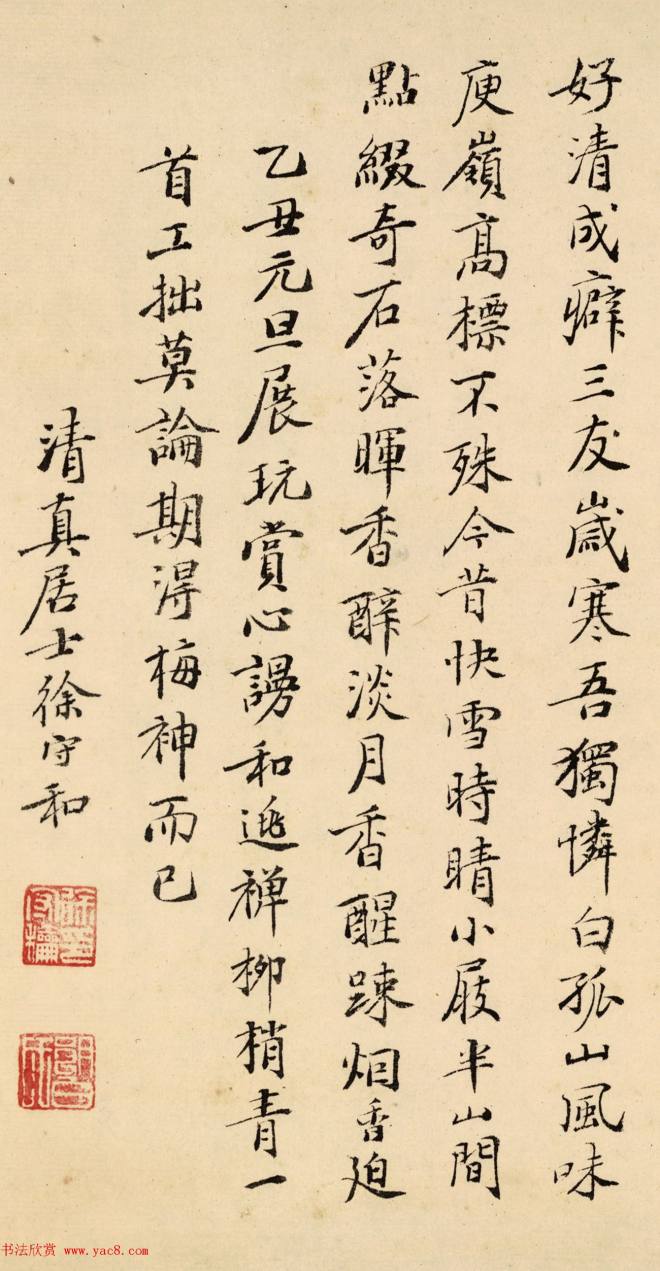 好清成癖三友嵗寒吾獨憐白孤山風味
庾嶺高標不殊今昔快雪時晴小屐半山間
點綴奇石落暉香醉淡月香醒踈烟香廹
乙丑元旦展玩賞心謾和逃禅柳梢青一
首工拙莫論期淂梅神而已
清真居士徐守和
书法欣赏 www.yac8.com